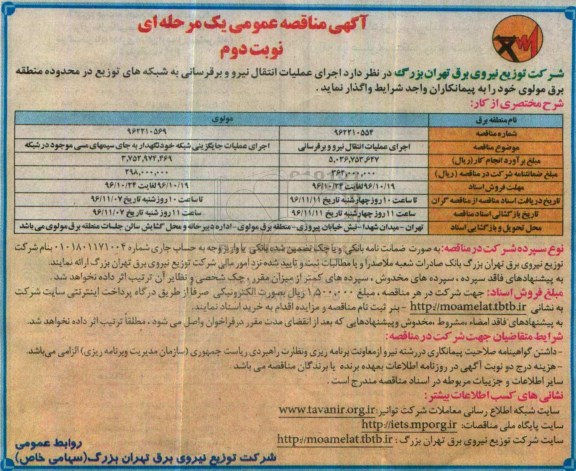 آگهی مناقصه عمومی یک مرحله ای
نوبت دوم
شرکت توزیع نیروی برق تهران بزرگ در نظر دارد اجرای عملیات انتقال نیرو و برقرسانی به شبکه های توزیع در محدوده منطقه
برق مولوی خود را به پیمانکاران واجد شرایط واگذار نماید .
شرح مختصری از کار:
نام منطقه برق مولوی
شماره مناقصه ۹۶۲۲۱۰۵۵۴ ۹۶۲۲۱۰۵۶۹
موضوع مناقصه اجرای عملیات انتقال نیرو و برقرسانی اجرای عملیات جایگزینی شبکه خودنگهدار به جای سیمهای مسی موجود در شبکه
مبلغ برآورد انجام کار (ریال) ۵,۰۳۶,۷۵۳,۶۴۷ ۳,۷۵۳,۹۷۴,۴۶۹
مبلغ ضمانتنامه شرکت در مناقصه (ریال) ۳۶۲,۰۰۰,۰۰۰ ۲۹۸,۰۰۰,۰۰۰
مهلت فروش اسناد ۹۶/۱۰/۱۹ لغایت ۹۶/۱۰/۲۴ ۹۶/۱۰/۱۹ لغایت ۹۶/۱۰/۲۴
تاریخ دریافت اسناد مناقصه از مناقصه گران تا ساعت ۱۰ روز چهارشنبه تاریخ ۹۶/۱۱/۱۱ تا ساعت ۱۰ روز شنبه تاریخ ۹۶/۱۱/۰۷
تاریخ بازگشائی اسناد مناقصه ساعت ۱۱ روز چهارشنبه تاریخ ۹۶/۱۱/۱۱ ساعت ۱۱ روز شنبه تاریخ ۹۶/۱۱/۰۷
محل تحویل و بازگشایی اسناد تهران - میدان شهدا - نبش خیابان پیروزی - منطقه برق مولوی - اداره دبیرخانه و محل گشایش سالن جلسات منطقه برق مولوی می باشد
نوع سپرده شرکت در مناقصه: به صورت ضمانت نامه بانکی و یا چک تضمین شده بانکی یا واریز وجه به حساب جاری شماره ۰۱۰۱۸۰۱۱۷۱۰۰۴ بنام شرکت
توزیع نیروی برق تهران بزرگ بانک صادرات شعبه ملاصدرا و یا مطالبات ثبت و تایید شده نزد امور مالی شرکت توزیع نیروی برق تهران بزرگ ارائه نمایند.
به پیشنهادهای فاقد سپرده ، سپرده های مخدوش ، سپرده های کمتر از میزان مقرر ، چک شخصی و نظایر آن ترتیب اثر داده نخواهد شد.
مبلغ فروش اسناد: جهت شرکت در هر مناقصه ، مبلغ ۱,۵۰۰,۰۰۰ ریال بصورت الکترونیکی صرفاً از طریق درگاه پرداخت اینترنتی سایت شرکت
به نشانی http://moamelat.tbtb.ir - بنر ثبت نام مناقصه و مزایده اقدام به خرید اسناد نمایند.
به پیشنهادهای فاقد امضاء ،مشروط ،مخدوش وپیشنهادهایی که بعد از انقضای مدت مقرر در فراخوان واصل می شود ، مطلقاً ترتیب اثر داده نخواهد شد.
شرایط متقاضیان جهت شرکت در مناقصه:
-داشتن گواهینامه صلاحیت پیمانکاری در رشته نیرو از معاونت برنامه ریزی ونظارت راهبردی ریاست جمهوری (سازمان مدیریت وبرنامه ریزی) الزامی می باشد.
-هزینه درج دو نوبت آگهی در روزنامه اطلاعات بعهده برنده یا برندگان مناقصه می باشد.
سایر اطلاعات و جزییات مربوطه در اسناد مناقصه مندرج است .
نشانی های کسب اطلاعات بیشتر:
سایت شبکه اطلاع رسانی معاملات شرکت توانیر: www.tavanir.org.ir
سایت پایگاه ملی مناقصات: http://iets.mporg.ir
سایت شرکت توزیع نیروی برق تهران بزرگ : http://moamelat.tbtb.ir
روابط عمومی
شرکت توزیع نیروی برق تهران بزرگ(سهامی خاص)